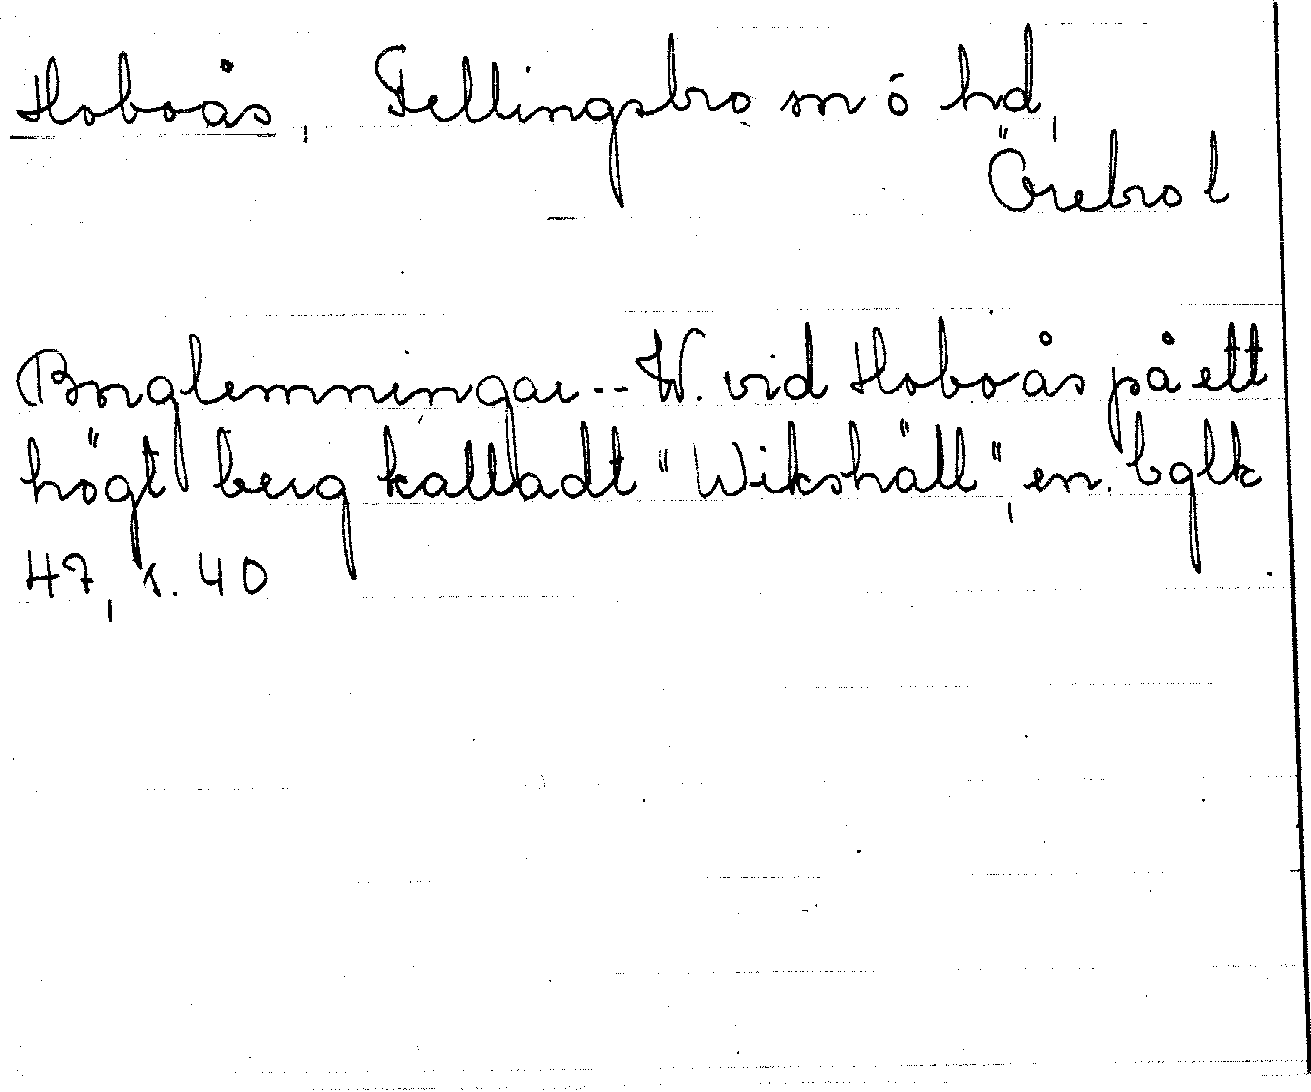 Hoboås, Fellingsbro sn ó hd,
Örebro l
Borglemningar -- W. vid Hoboås på ett
högt berg kalladt "Wikshäll", en. bglk
47, s. 40